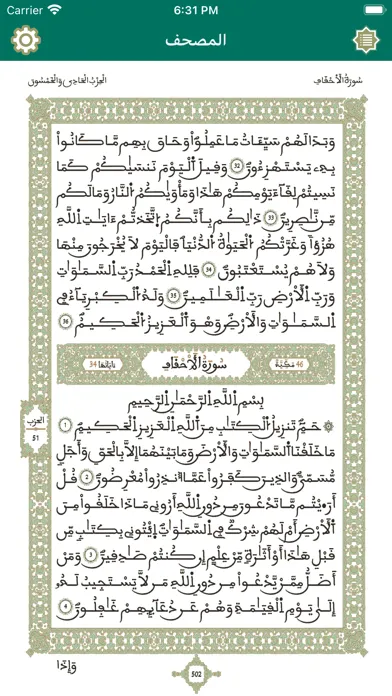 Carrier 6:31 PM
المصحف
سُورَةُ الْأَحْقَافِ الحِزْبُ الحَادِي وَالخَمْسُونَ
وَبَدَا لَهُمْ سَيِّـَٔاتُ مَا عَمِلُوا۟ وَحَاقَ بِهِم مَّا كَانُوا۟
بِهِۦ يَسْتَهْزِءُونَ 32 وَقِيلَ ٱلْيَوْمَ نَنسَىٰكُمْ كَمَا
نَسِيتُمْ لِقَآءَ يَوْمِكُمْ هَٰذَا وَمَأْوَىٰكُمُ ٱلنَّارُ وَمَا لَكُم
مِّن نَّٰصِرِينَ 33 ذَٰلِكُم بِأَنَّكُمُ ٱتَّخَذتُّمْ ءَايَٰتِ ٱللَّهِ
هُزُؤًا وَغَرَّتْكُمُ ٱلْحَيَوٰةُ ٱلدُّنْيَا فَٱلْيَوْمَ لَا يُخْرَجُونَ مِنْهَا
وَلَا هُمْ يُسْتَعْتَبُونَ 34 فَلِلَّهِ ٱلْحَمْدُ رَبِّ ٱلسَّمَٰوَٰتِ
وَرَبِّ ٱلْأَرْضِ رَبِّ ٱلْعَٰلَمِينَ 35 وَلَهُ ٱلْكِبْرِيَآءُ فِي
ٱلسَّمَٰوَٰتِ وَٱلْأَرْضِ وَهُوَ ٱلْعَزِيزُ ٱلْحَكِيمُ 36
46 مَكِّيَّة سُورَةُ الْأَحْقَافِ ءَايَاتُهَا 34
بِسْمِ ٱللَّهِ ٱلرَّحْمَٰنِ ٱلرَّحِيمِ
حَمِٓ تَنزِيلُ ٱلْكِتَٰبِ مِنَ ٱللَّهِ ٱلْعَزِيزِ ٱلْحَكِيمِ 1
مَا خَلَقْنَا ٱلسَّمَٰوَٰتِ وَٱلْأَرْضَ وَمَا بَيْنَهُمَآ إِلَّا بِٱلْحَقِّ وَأَجَلٍ
مُّسَمًّى وَٱلَّذِينَ كَفَرُوا۟ عَمَّآ أُنذِرُوا۟ مُعْرِضُونَ 2 قُلْ
أَرَٰٓيْتُم مَّا تَدْعُونَ مِن دُونِ ٱللَّهِ أَرُونِي مَاذَا خَلَقُوا۟ مِنَ
ٱلْأَرْضِ أَمْ لَهُمْ شِرْكٌ فِي ٱلسَّمَٰوَٰتِ ٱئْتُونِي بِكِتَٰبٍ مِّن
قَبْلِ هَٰذَآ أَوْ أَثَٰرَةٍ مِّنْ عِلْمٍ إِن كُنتُمْ صَٰدِقِينَ 3 وَمَنْ
أَضَلُّ مِمَّن يَدْعُوا۟ مِن دُونِ ٱللَّهِ مَن لَّا يَسْتَجِيبُ لَهُۥ
إِلَىٰ يَوْمِ ٱلْقِيَٰمَةِ وَهُمْ عَن دُعَآئِهِمْ غَٰفِلُونَ 4
الحزب
51
وَإِذَا
502